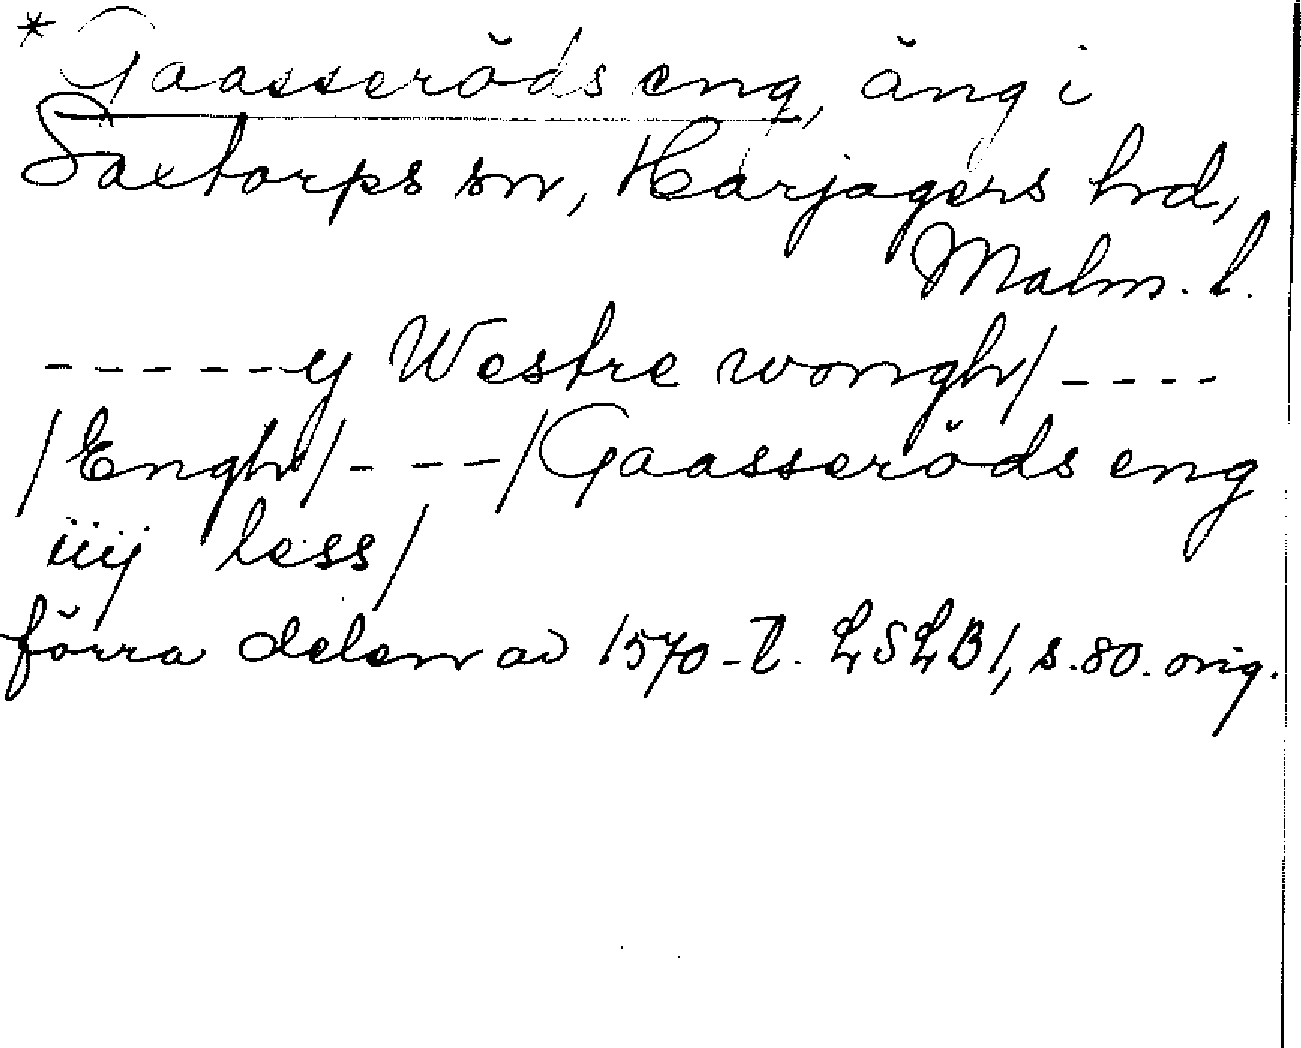 * Gaasserŏds eng, ăng i
Saxtorps sn, Harjagers hrd,
Malm. l.
------y Westre wongh/----
/Engh/----/Gaasserŏds eng
iiij less/
fŏrra delen av 1570-t. LSLB1, s.80. orig.